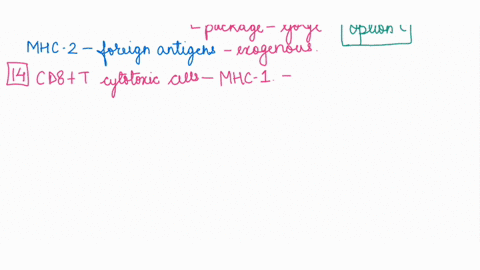 - package - golgi option C
MHC-2 - foreign antigens - exogenous.
14 CD8+T cytotoxic cells - MHC-1. -